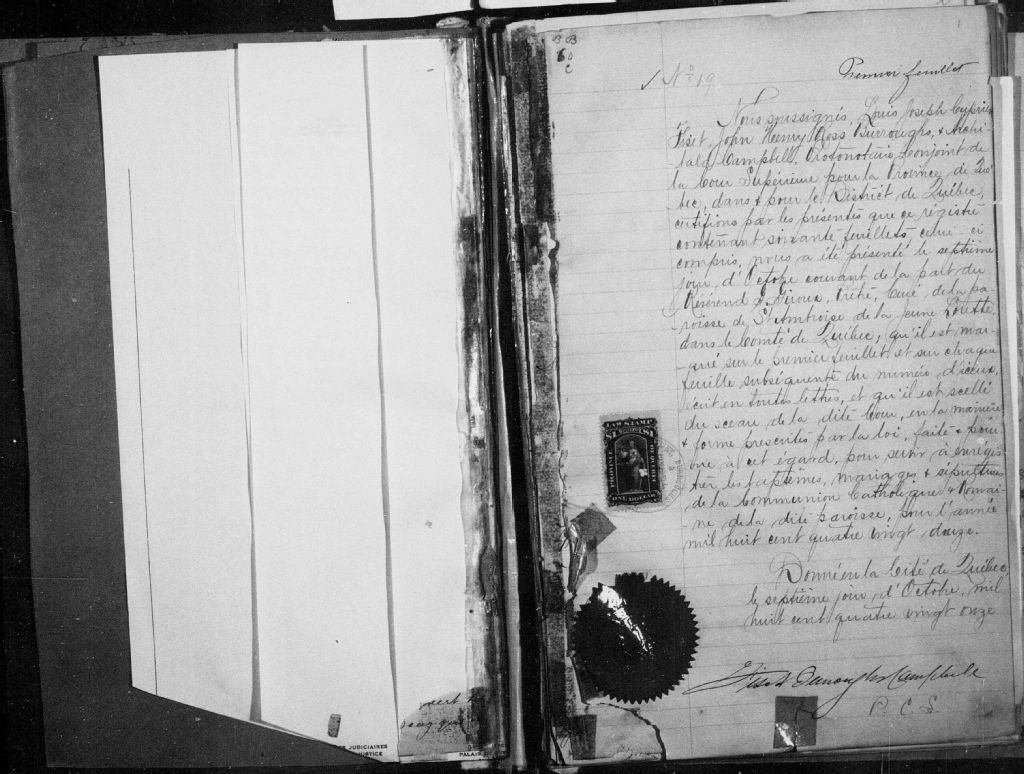 BB
6
c
Premier feuillet
No 19
Nous soussignés, Louis Joseph Cyprien
Fiset, John Henry Ross Burroughs, & Archi-
-bald Campbell, Protonotaire Conjoint de
la Cour Supérieure pour la Province de Qué
bec, dans & pour le District de Québec,
certifions par les présentes que ce régistre
contenant soixante feuillets, celui-ci
compris, nous a été présenté le septième
jour d'Octobre courant de la part du
Révérend G. Giroux, Prêtre, Curé de la pa
roisse de St Ambroise de la Jeune Lorette,
dans le Comté de Québec; qu'il est mar-
-qué sur le premier feuillet et sur chaque
feuille subséquente du numéro d'iceux,
écrit en toutes lettres, et qu'il est scellé
du sceau de la dite Cour, en la manière
& forme presentés par la loi, faite & pour
vue à cet égard, pour servir à enrégis
trer les baptêmes, mariages & sépultures
de la Communion Catholique & Romai-
-ne de la dite paroisse, pour l'année
mil huit cent quatre vingt douze.
Donné en la Cité de Québec
le septième jour d'Octobre, mil
huit cent quatre vingt onze
Fiset Burroughs Campbell
P. C. S.
LAW STAMP
$1 $1
PROVINCE
OF QUEBEC
ONE DOLLAR
JUDICIAIRES
JUSTICE
PALAIS